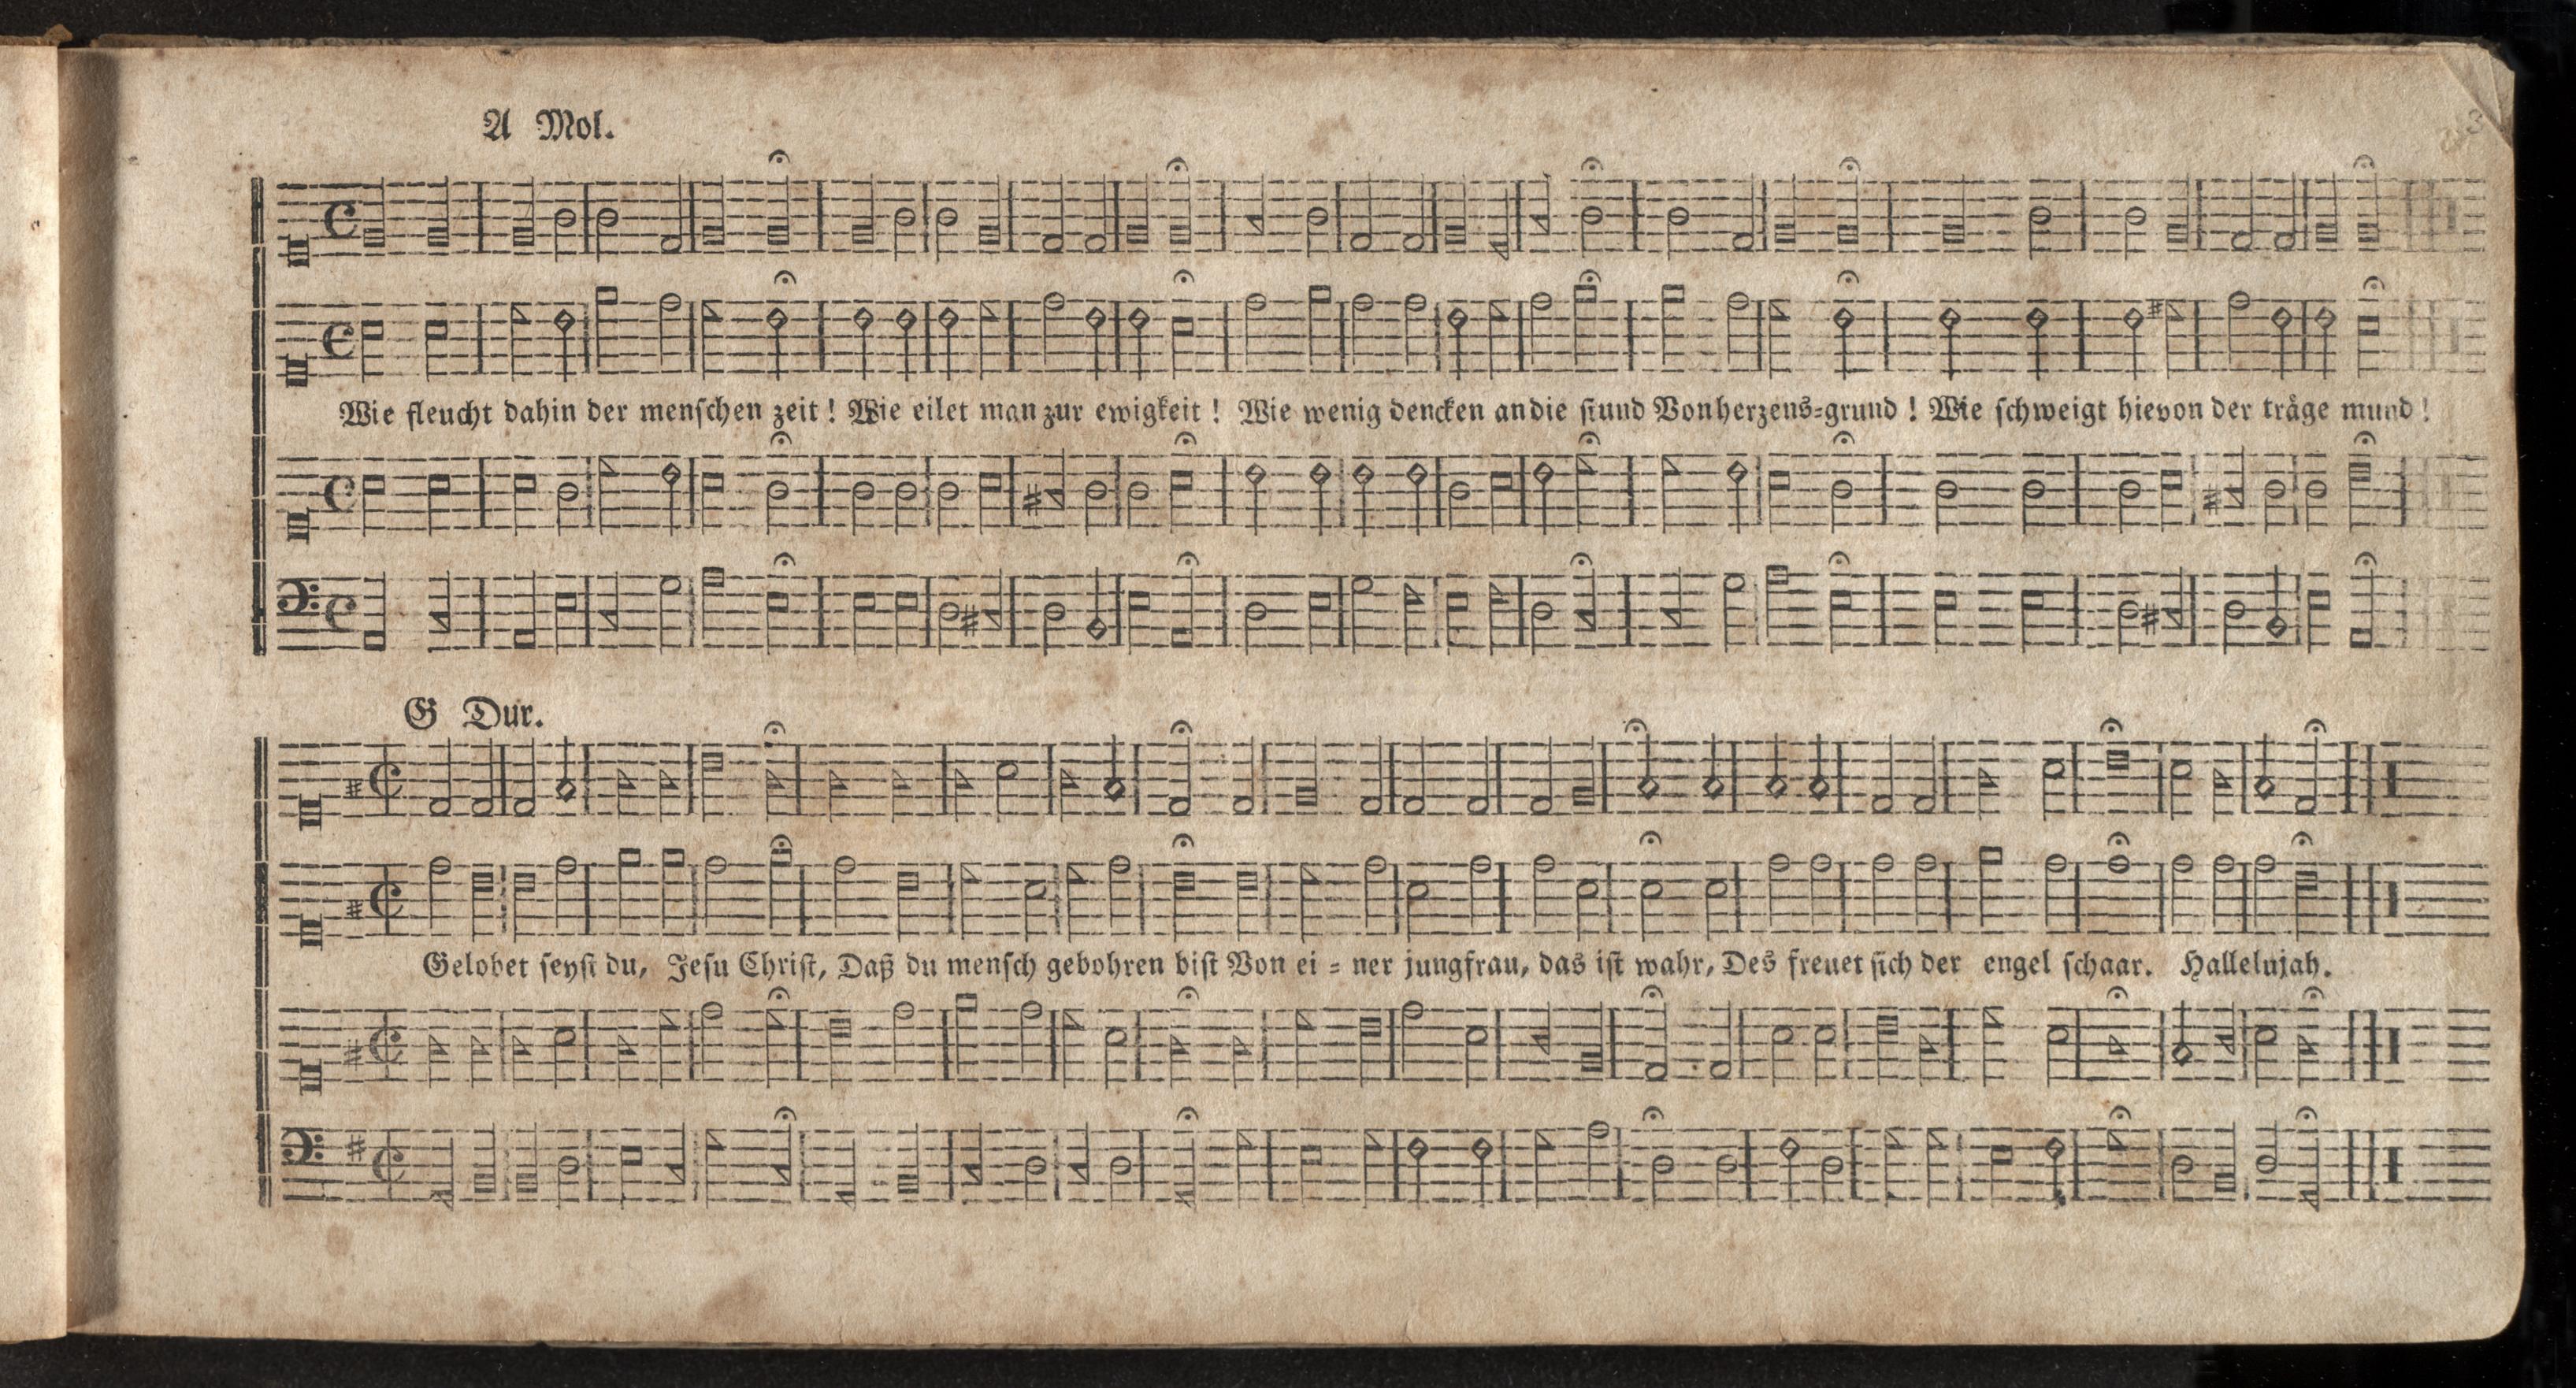 A Mol.
Wie fleucht dahin der menſchen zeit! Wie eilet man zur ewigkeit! Wie wenig dencken an die ſtund Von herzens=grund! Wie ſchweigt hievon der träge mund!
G Dur.
Gelobet ſeyſt du, Jeſu Chriſt, Daß du menſch gebohren biſt Von ei = ner jungfrau, das iſt wahr, Des freuet ſich der engel ſchaar. Hallelujah.